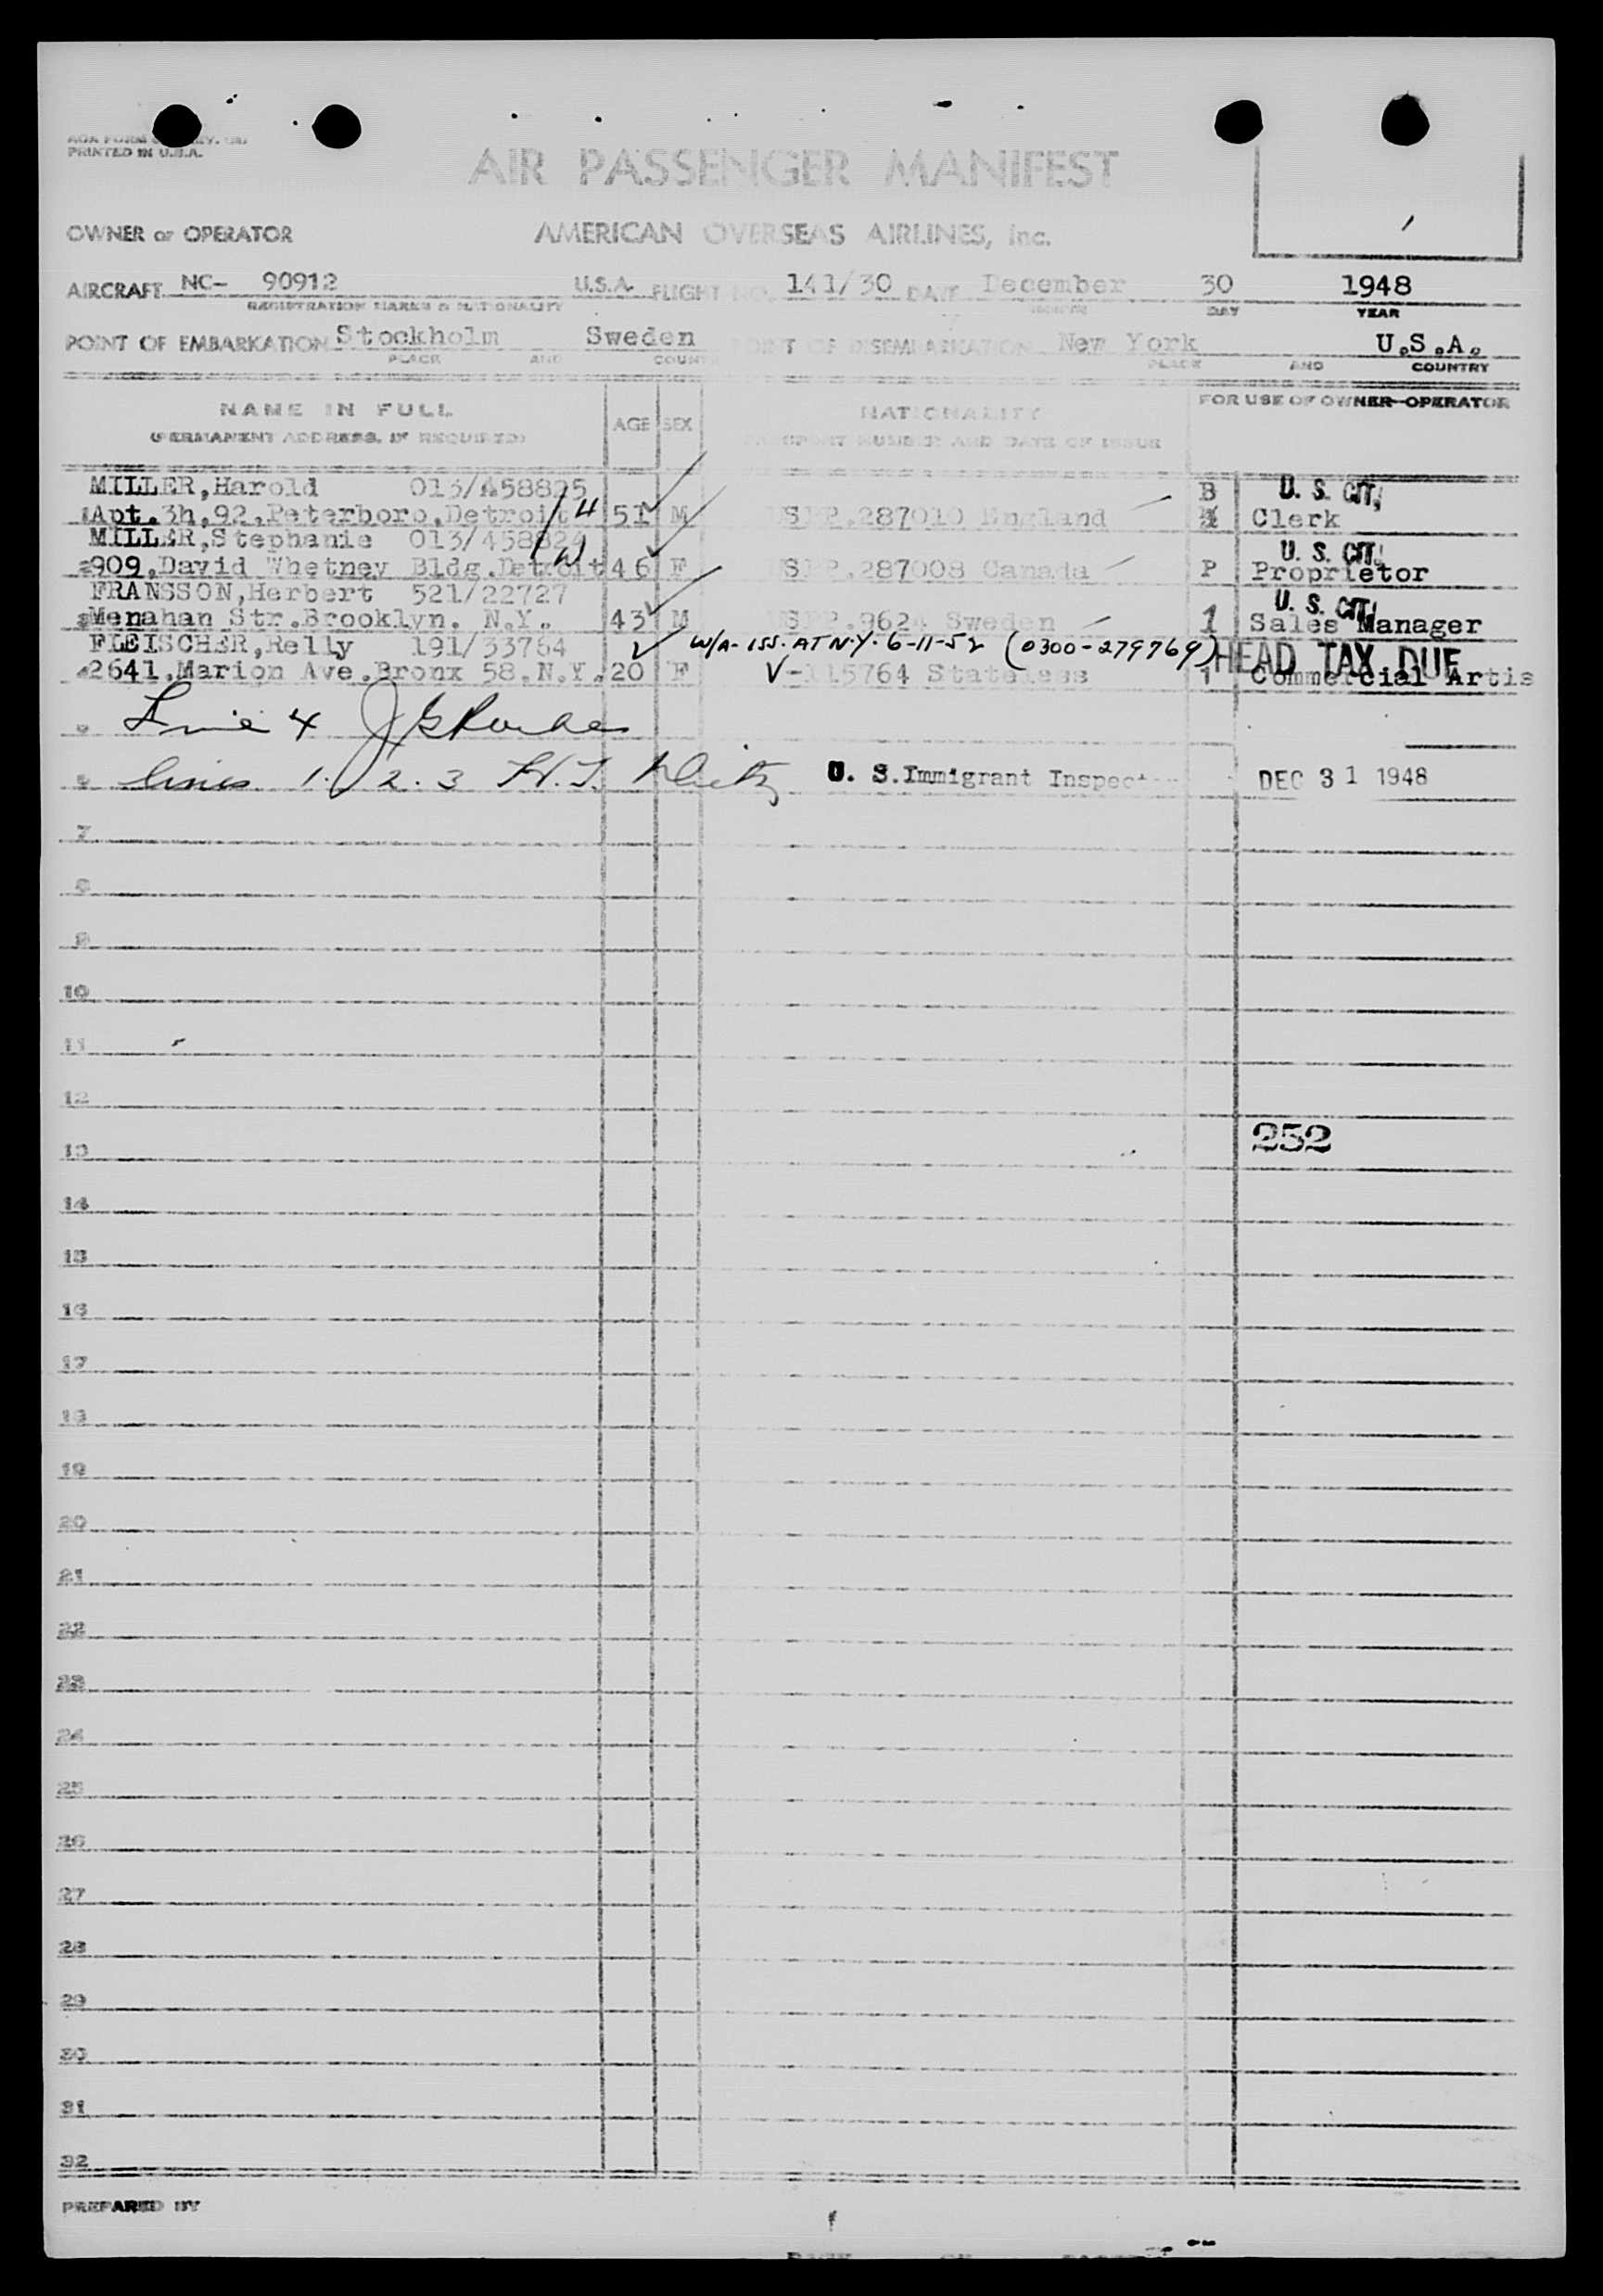 PRINTED IN U.S.A.
AIR PASSENGER MANIFEST
OWNER or OPERATOR AMERICAN OVERSEAS AIRLINES, Inc.
AIRCRAFT NC- 90912 U.S.A. FLIGHT NO. 141/30 DATE December 30 1948
REGISTRATION MARKS & NATIONALITY MONTH DAY YEAR
POINT OF EMBARKATION Stockholm Sweden POINT OF DISEMBARKATION New York U.S.A.
PLACE AND COUNTRY PLACE AND COUNTRY
NAME IN FULL AGE SEX NATIONALITY FOR USE OF OWNER OPERATOR
(PERMANENT ADDRESS, IF REQUIRED) PASSPORT NUMBER AND DATE OF ISSUE
MILLER,Harold 013/458825 B U. S. CIT,
1 Apt.3h,92,Peterboro,Detroit 51 M USPP.287010 England Clerk
MILLER,Stephanie 013/458824 U. S. CIT,
2 909,David Whetney Bldg.Detroit 46 F USPP.287008 Canada P Proprietor
FRANSSON,Herbert 521/22727 U. S. CIT,
3 Menahan Str.Brooklyn. N.Y. 43 M USPP.9624 Sweden 1 Sales Manager
FLEISCHER,Relly 191/33764 W/A- ISS. AT N.Y. 6-11-52 (0300-279769) HEAD TAX DUE
4 2641,Marion Ave.Bronx 58.N.Y. 20 F V-115764 Stateless 1 Commercial Artis
5 Line 4
6 lines 1. 2. 3 U. S. Immigrant Inspector DEC 31 1948
7
8
9
10
11
12
13 252
14
15
16
17
18
19
20
21
22
23
24
25
26
27
28
29
30
31
32
PREPARED BY